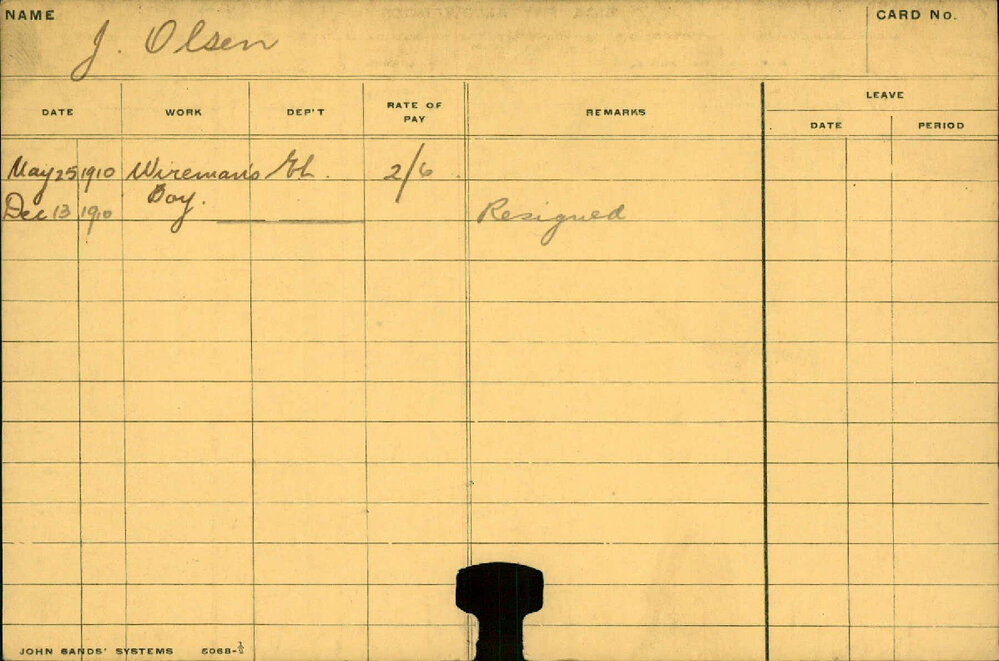 NAME
J. Olsen
CARD No.
DATE WORK DEP'T RATE OF PAY REMARKS LEAVE
DATE PERIOD
May 25 1910 Wireman's El. 2/6
Boy.
Dec 13 1910 Resigned
JOHN SANDS' SYSTEMS 5068-½